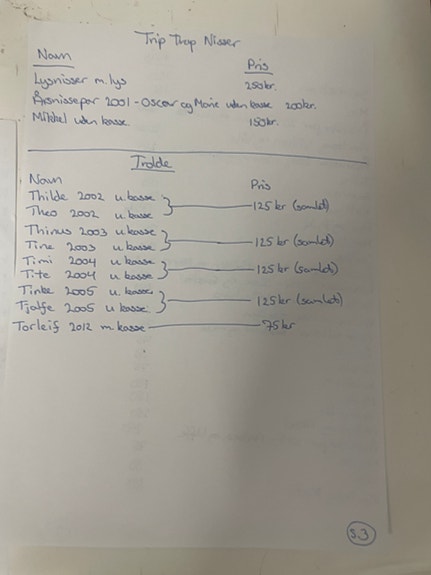 Trip Trap Nisser
Navn Pris
Lysnisser m. lys 250kr.
Årsnissepar 2001 - Oscar og Marie uden kasse 200kr.
Mikkel uden kasse 150kr.
Trolde
Navn Pris
Thilde 2002 u. kasse
Theo 2002 u. kasse 125 kr (samlet)
Thinus 2003 u. kasse
Tine 2003 u. kasse 125 kr (samlet)
Timi 2004 u kasse
Tite 2004 u kasse 125 kr (samlet)
Tinke 2005 u. kasse
Tjalfe 2005 u kasse 125 kr (samlet)
Torleif 2012 m. kasse 75 kr
S.3